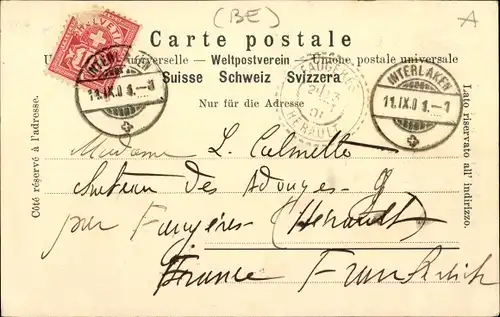 (BE)
A
Carte postale
Union postale universelle — Weltpostverein — Unione postale universale
Suisse Schweiz Svizzera
Nur für die Adresse
Côté réservé à l'adresse.
Lato riservato all' indirizzo.
HELVETIA
INTERLAKEN
11.IX.01.-3
HERAULT
INTERLAKEN
11.IX.01.-1
Madame L. Calmette
des
par Faugères (Hérault)
France Frankreich